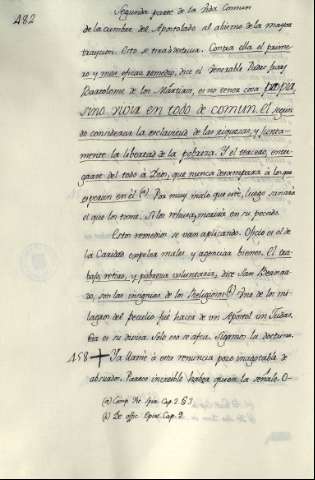 482
Segunda parte de la Vida Comun
de la cumbre del Apostolado al abismo de la mayor
traycion. Esto se trae de traza. Contra ella el prime-
ro y mas eficaz remedio, dice el Venerable Padre fray
Bartolome de los Martires, es no tener cosa propia
sino vivir en todo de comun. El segun-
do considerar la esclavitud de las riquezas, y junta-
mente la libertad de la pobreza. Y el tercero, entre-
garse del todo à Dios, que nunca desampara à los que
esperan en él (a). Por muy malo que esté, luego sanará
el que los toma. Si los rehusa, morirá en su pecado.
Estos remedios se van aplicando. Oficio es el de
la Caridad expeler males, y agenciar bienes. El tra-
bajo, retiro, y pobreza voluntaria, dice San Bernar-
do, son las insignias de los Religiosos (b). Uno de los mi-
lagros del peculio fué hacer de un Apostol un Judas.
Esa es su divisa. Solo eso se saca. Sigamos la doctrina.
458 + Ya llamé à esta renuncia pozo inagotable de
abusos. Parece increible hubiese quien la señale. O-
(a) Comp. Vit. Spir. Cap. 2. § 3.
(b) De offic. Episc. Cap. 2.